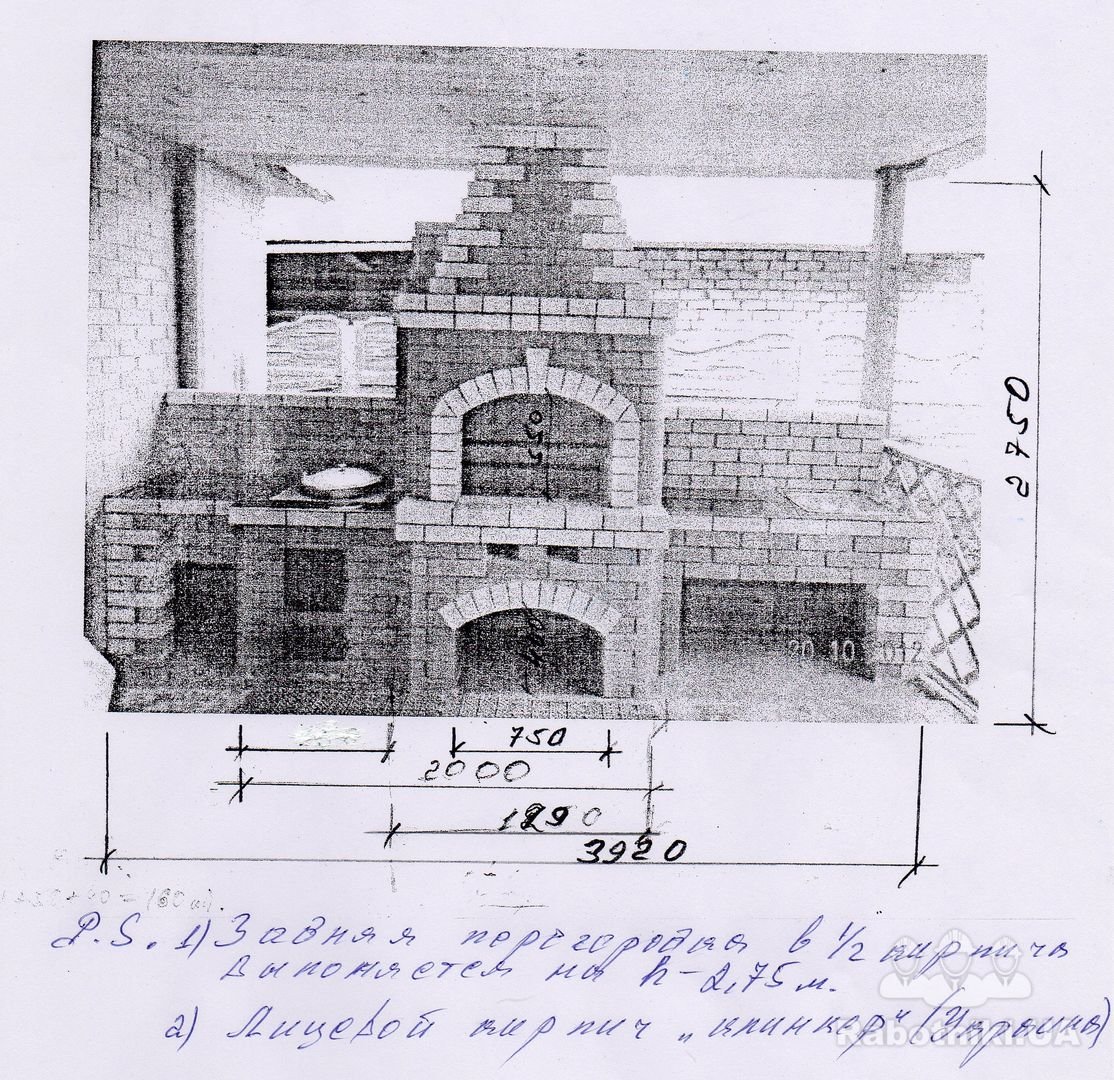 550
2750
440
20 10 2012
750
2000
1290
3920
P.S. 1) Задняя перегородка в 1/2 кирпича
выполняется на h - 2,75 м.
2) Лицевой кирпич „клинкер“ (Украина)
Rabotniki.UA